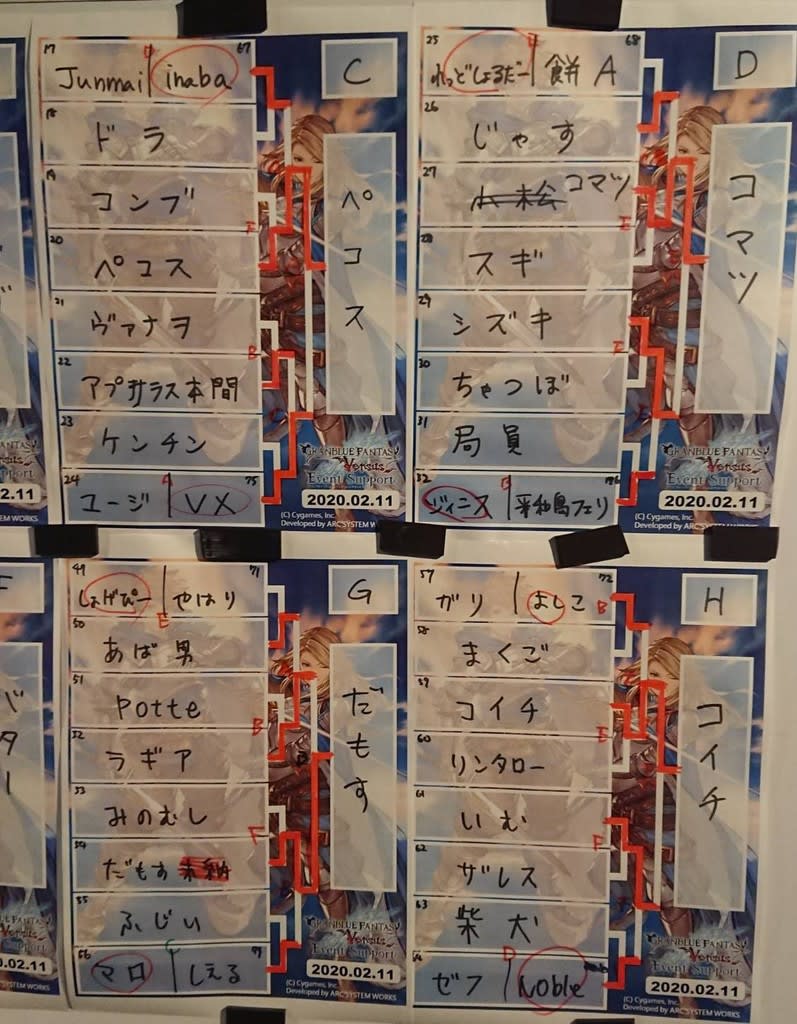 17 Junmai inaba 67 C
18 ドラ
19 コンブ
20 ペコス
21 ヴァナヲ
22 アプサラス本間
23 ケンチン
24 ユージ VX 75
ペコス
GRANBLUE FANTASY
Versus
Event Support
2020.02.11
(C) Cygames, Inc.
Developed by ARC SYSTEM WORKS
25 れっどしょるだー 餅A 68 D
26 じゃす
27 小松 コマツ
28 スギ
29 シズキ
30 ちゃつぼ
31 局員
32 ジィニス 平和島フェリ
コマツ
GRANBLUE FANTASY
Versus
Event Support
2020.02.11
(C) Cygames, Inc.
Developed by ARC SYSTEM WORKS
2.11
SYSTEM WORKS
49 しょげぴー やはり 71 G
50 あば男
51 Potte
52 ラギア
53 みのむし
54 だもす
55 ふじい
56 マロ しえる
だもす
GRANBLUE FANTASY
Versus
Event Support
2020.02.11
(C) Cygames, Inc.
Developed by ARC SYSTEM WORKS
57 ガリ よしこ 72 H
58 まくご
59 コイチ
60 リンタロー
61 いむ
62 ザレス
63 柴犬
64 ゼフ Noble
コイチ
GRANBLUE FANTASY
Versus
Event Support
2020.02.11
(C) Cygames, Inc.
Developed by ARC SYSTEM WORKS
F
バター
.02.11
SYSTEM WORKS